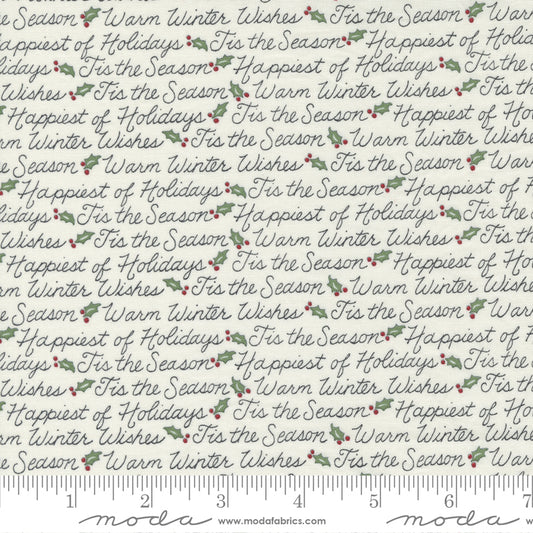 Tis the Season Warm
Happiest of Holidays Tis the Season Happiest of Holida
lidays Tis the Season Happiest of Holidays Tis the Se
Wishes Tis the Season Warm Winter Wishes Tis th
Happiest of Holidays Tis the Season Happiest of Ho
rm Winter Wishes Tis the Season Warm Winter Wi
he Season Warm Winter Wishes Tis the Season Warm
Happiest of Holidays Tis the Season Happiest of H
lidays Tis the Season Happiest of Holidays Tis the Se
Wishes Tis the Season Warm Winter Wishes Tis th
Happiest of Holidays Tis the Season Happiest of Ho
rm Winter Wishes Tis the Season Warm Winter Wi
he Season Warm Winter Wishes Tis the Season Warm
Happiest of Holidays Tis the Season Happiest of H
lidays Tis the Season Happiest of Holidays Tis the Se
Wishes Tis the Season Warm Winter Wishes Tis th
Happiest of Holidays Tis the Season Happiest of Ho
rm Winter Wishes Tis the Season Warm Winter Wi
he Season Warm Winter Wishes Tis the Season Warm
1 2 3 4 5 6 7
moda www.modafabrics.com moda